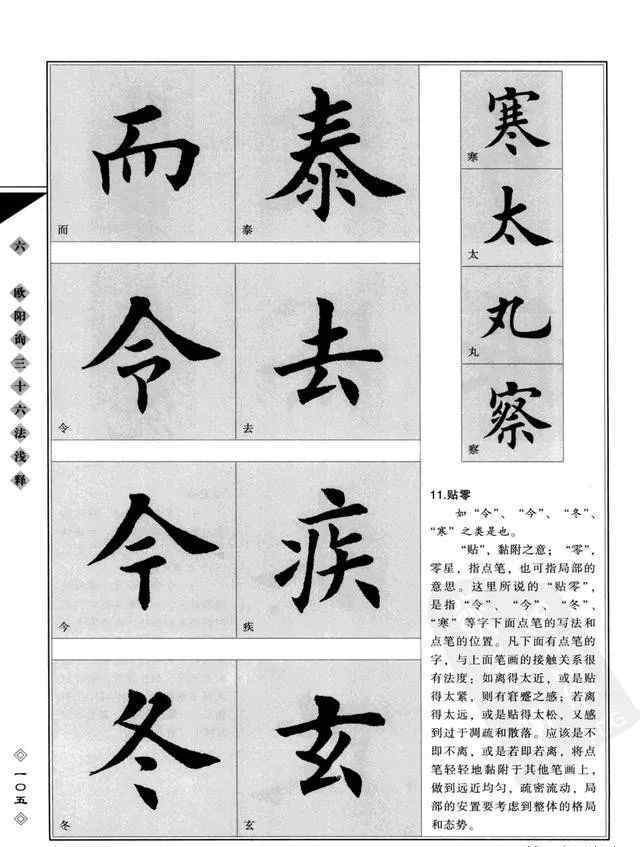 六 欧阳询三十六法浅释
一〇五
而
而
泰
泰
令
令
去
去
今
今
疾
疾
冬
冬
玄
玄
寒
寒
太
太
丸
丸
察
察
11.贴零
如“令”、“今”、“冬”、
“寒”之类是也。
“贴”，黏附之意；“零”，
零星，指点笔，也可指局部的
意思。这里所说的“贴零”，
是指“令”、“今”、“冬”、
“寒”等字下面点笔的写法和
点笔的位置。凡下面有点笔的
字，与上面笔画的接触关系很
有法度；如离得太近，或是贴
得太紧，则有窘蹙之感；若离
得太远，或是贴得太松，又感
到过于凋疏和散落。应该是不
即不离，或是若即若离，将点
笔轻轻地黏附于其他笔画上，
做到远近均匀，疏密流动，局
部的安置要考虑到整体的格局
和态势。